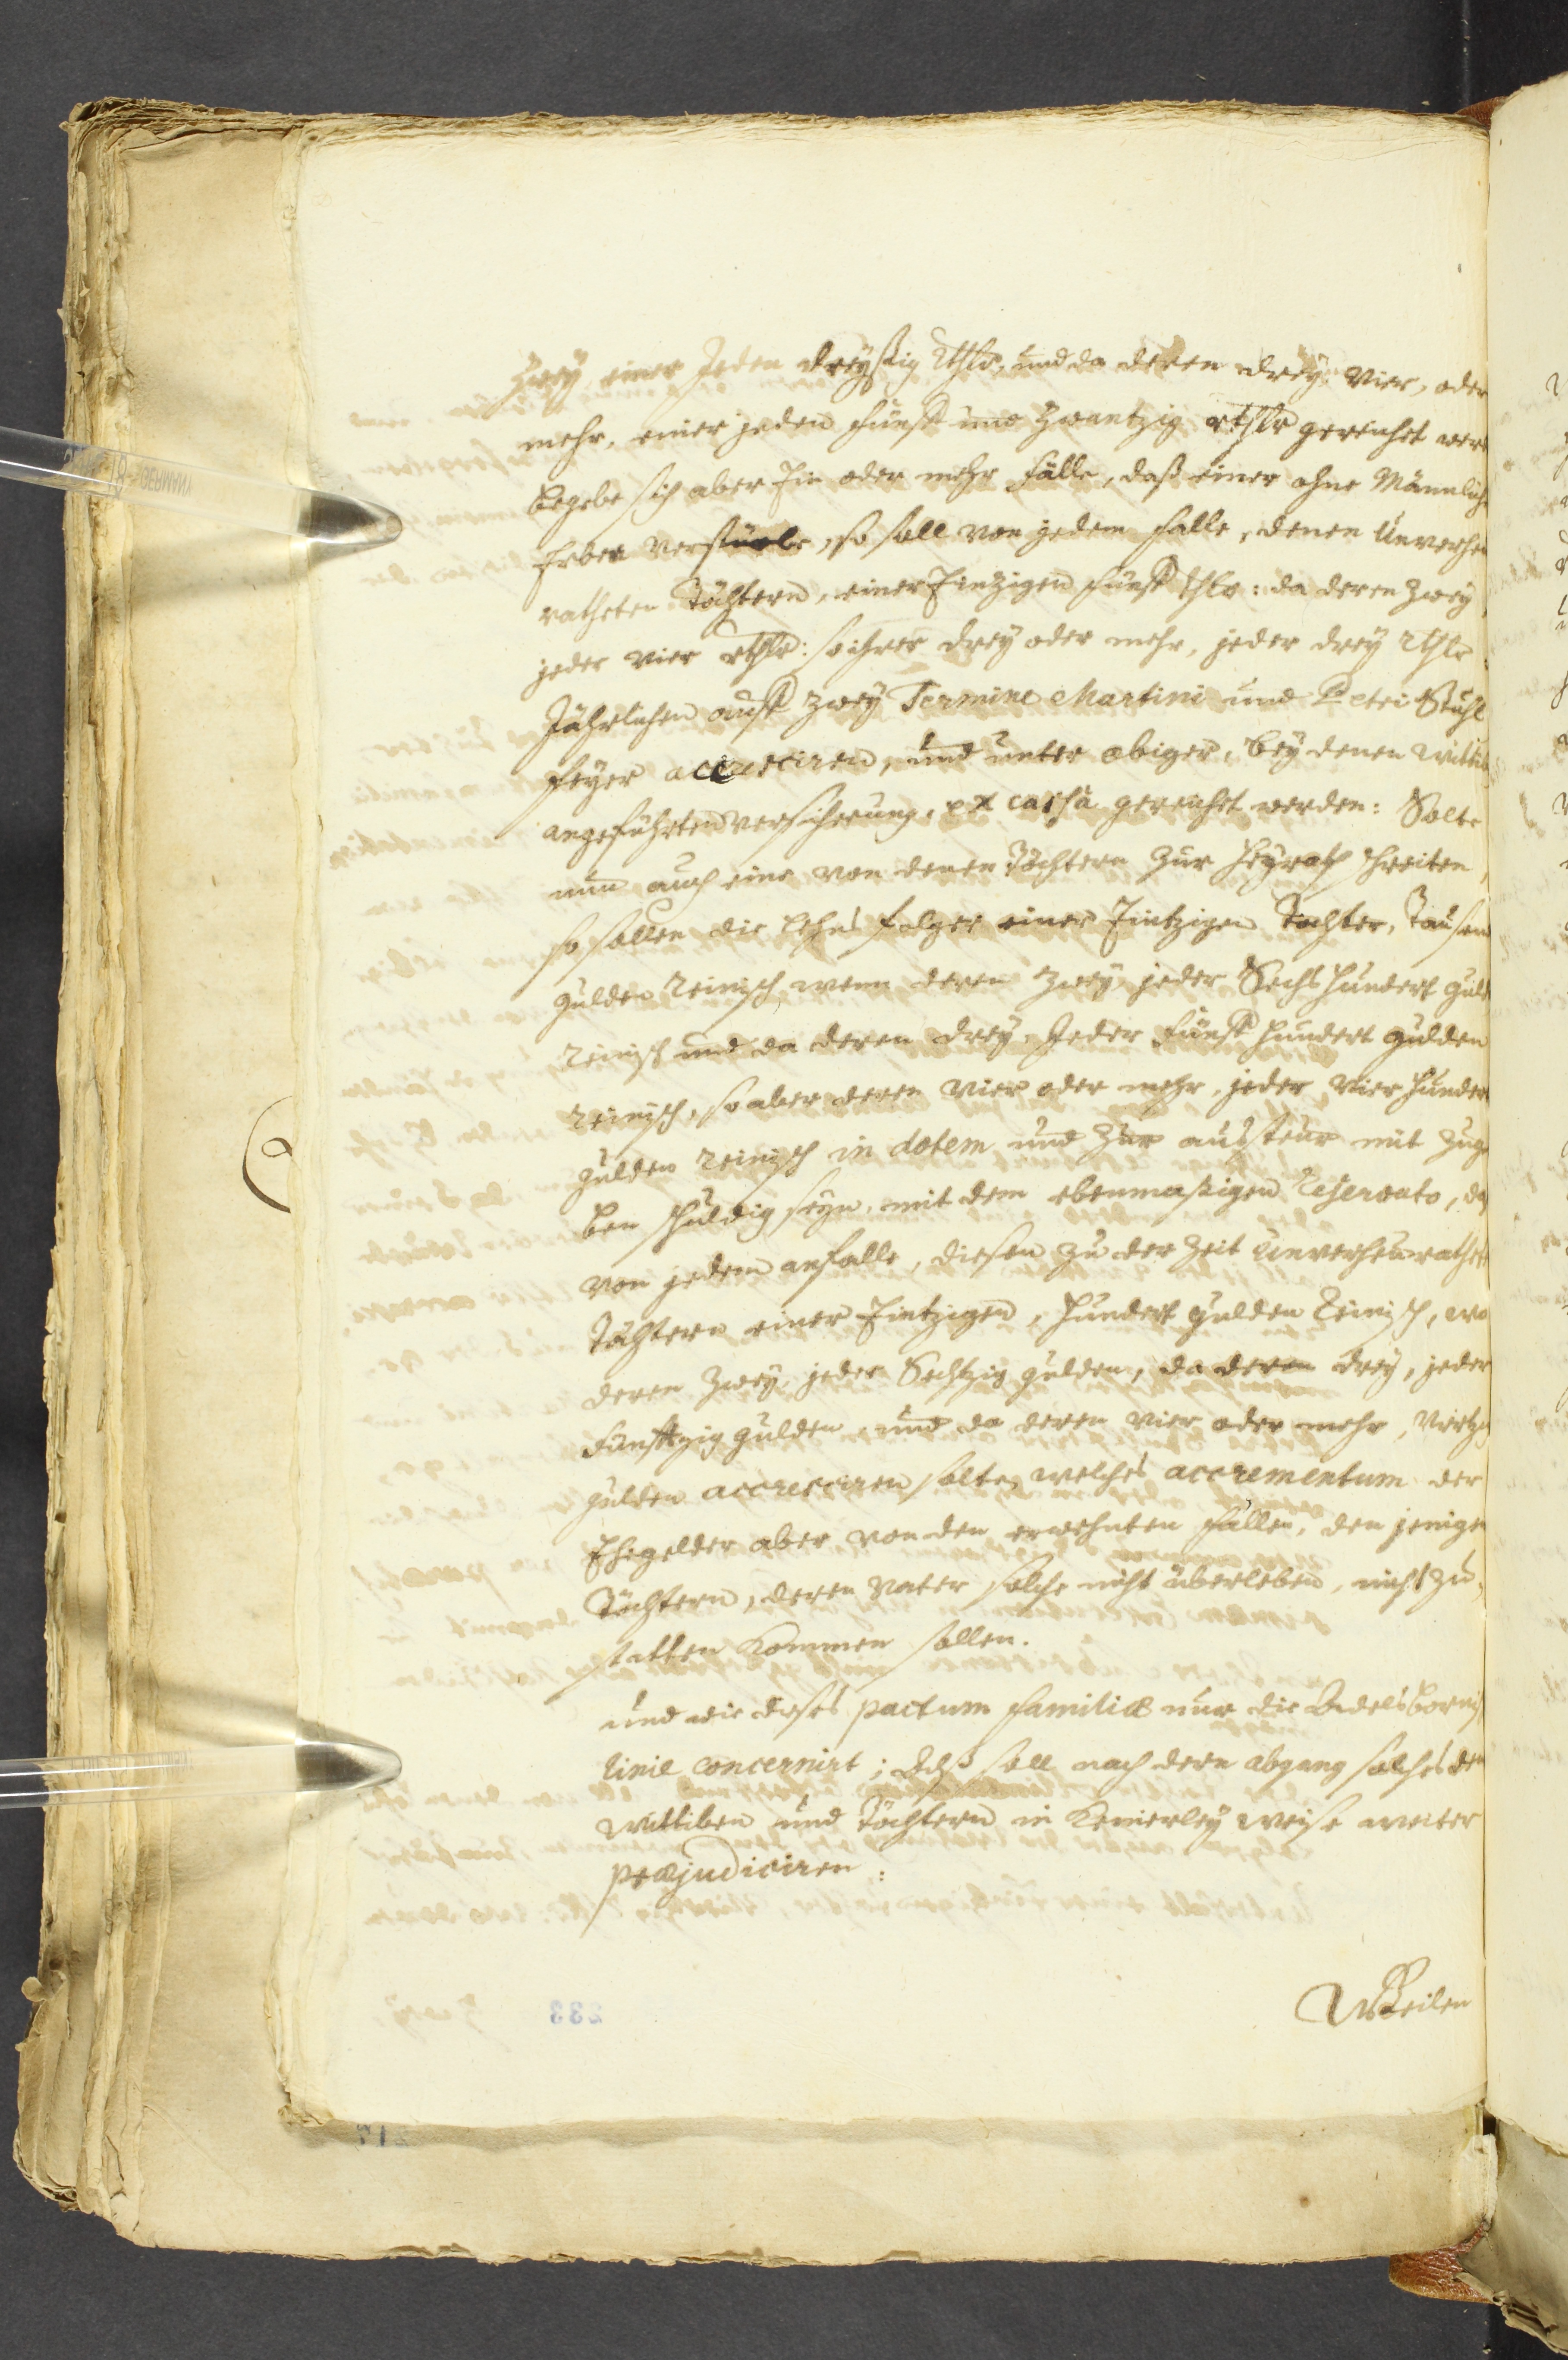 Zwey, einer Jeden dreyßig Rthlr, und da deren drey, vier, oder
mehr, einer jeden funff und Zwantzig rthlr gereichet wer
begebe sich aber Ein oder mehr Fälle, daß einer ohne Männlich
Erben verstürbe, so soll von jedem Falle, denen Unverhey
ratheten Töchtern, einer Eintzigen funff thlr: da deren Zwey
jeder vier rthlr: so ihrer drey oder mehr, jeder drey rthlr
Jährlichen auff Zwey Termine Martini und Petri Stuhl
feyer accresciren, und unter obiger, bey denen Wittib
angeführten versicherung, ex cassa gereichet werden: Solte
nun auch eine von denen Töchtern zur Heyrath schreiten,
so sollen die Lehns folger einer Eintzigen Tochter, Tausend
gulden Reinisch, wenn deren Zwey, jeder Sechshundert guld
Reinisch und da deren drey, Jeder funff hundert gulden
Reinisch, so aber deren vier oder mehr, jeder vier hunder
gulden Reinisch in dotem und zur aussteur mit zuge
ben schuldig seyn, mit dem ebenmaßigen Reservato, daß
von jedem anfalle, diesen zu der Zeit Unverheuratheten
Töchtern einer Eintzigen, hundert gulden Reinisch, wo
deren Zwey, jeder Sechtzig gulden, da deren drey, jeder
Funfftzig gulden, und da deren vier oder mehr, viertzig
gulden accresciren solte, welches accrementum der
Ehegelder aber von den erwehnten Fällen, den jenigen
Töchtern, deren Vater solche nicht überleben, nicht zu
statten kommen sollen.
und wie dieses pactum familiæ nur die
Linie concernirt; Alß soll nach deren abgang solches den
Wittiben und Töchtern in keinerley weise weiter
præjudiciren:
Weilen